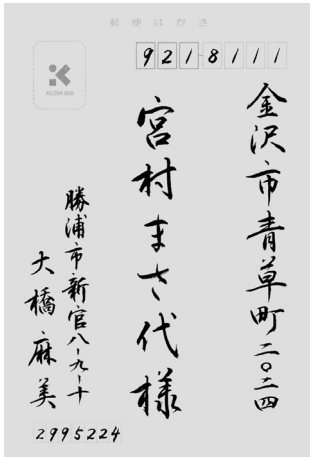 郵便はがき
921-8111
金沢市青草町二〇二四
宮村まさ代様
勝浦市新官八ー九ー十
大橋麻美
2995224